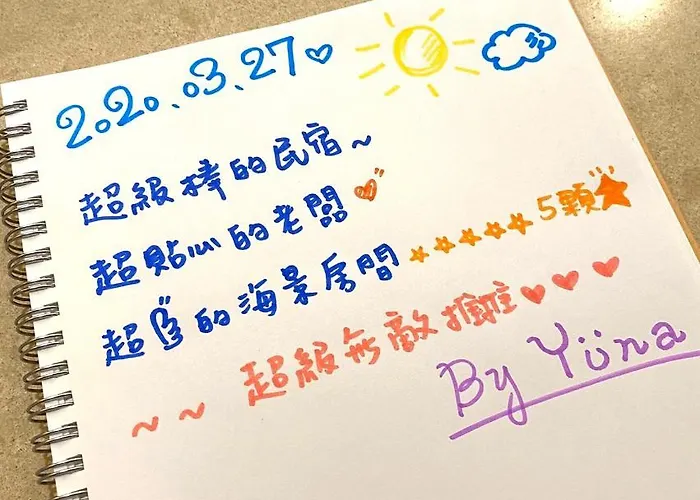 2020.03.27♡
超級棒的民宿~
超貼心的老闆♡
超ㄅㄧㄤˋ的海景房間☆☆☆☆☆5顆★
~~超級無敵推♥♥♥
By Yuna